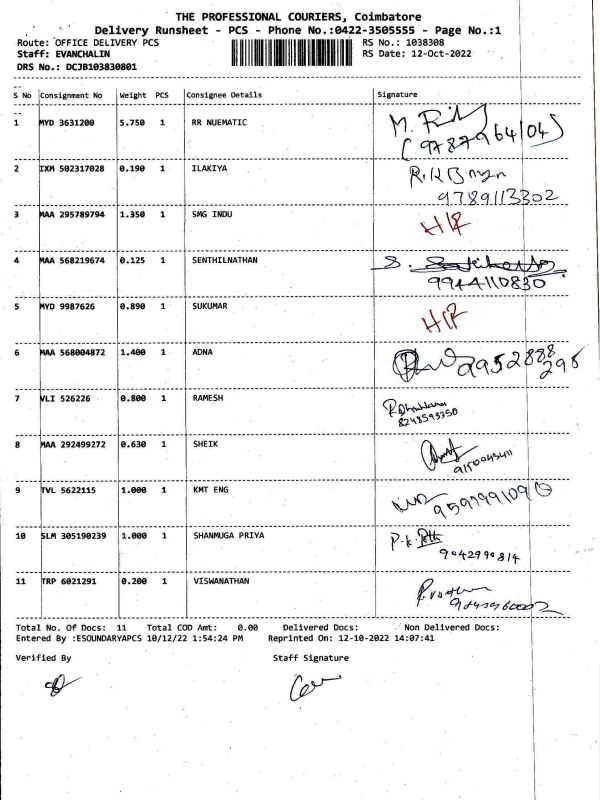 THE PROFESSIONAL COURIERS, Coimbatore
Delivery Runsheet - PCS - Phone No.:0422-3505555 - Page No.:1
Route: OFFICE DELIVERY PCS RS No.: 1038308
Staff: EVANCHALIN RS Date: 12-Oct-2022
DRS No.: DCJB103830801
S No Consignment No Weight PCS Consignee Details Signature
1 MYD 3631200 5.750 1 RR NUEMATIC M.
2 IXM 502317028 0.190 1 ILAKIYA
9789113302
3 MAA 295789794 1.350 1 SMG INDU
4 MAA 568219674 0.125 1 SENTHILNATHAN S.
9944110830
5 MYD 9987626 0.890 1 SUKUMAR
6 MAA 568004872 1.400 1 ADNA
7 VLI 526226 0.800 1 RAMESH
8248593350
8 MAA 292499272 0.630 1 SHEIK
9 TVL 5622115 1.000 1 KMT ENG
10 SLM 305190239 1.000 1 SHANMUGA PRIYA P.K.
9042990814
11 TRP 6021291 0.200 1 VISWANATHAN
Total No. Of Docs: 11 Total COD Amt: 0.00 Delivered Docs: Non Delivered Docs:
Entered By :ESOUNDARYAPCS 10/12/22 1:54:24 PM Reprinted On: 12-10-2022 14:07:41
Verified By Staff Signature